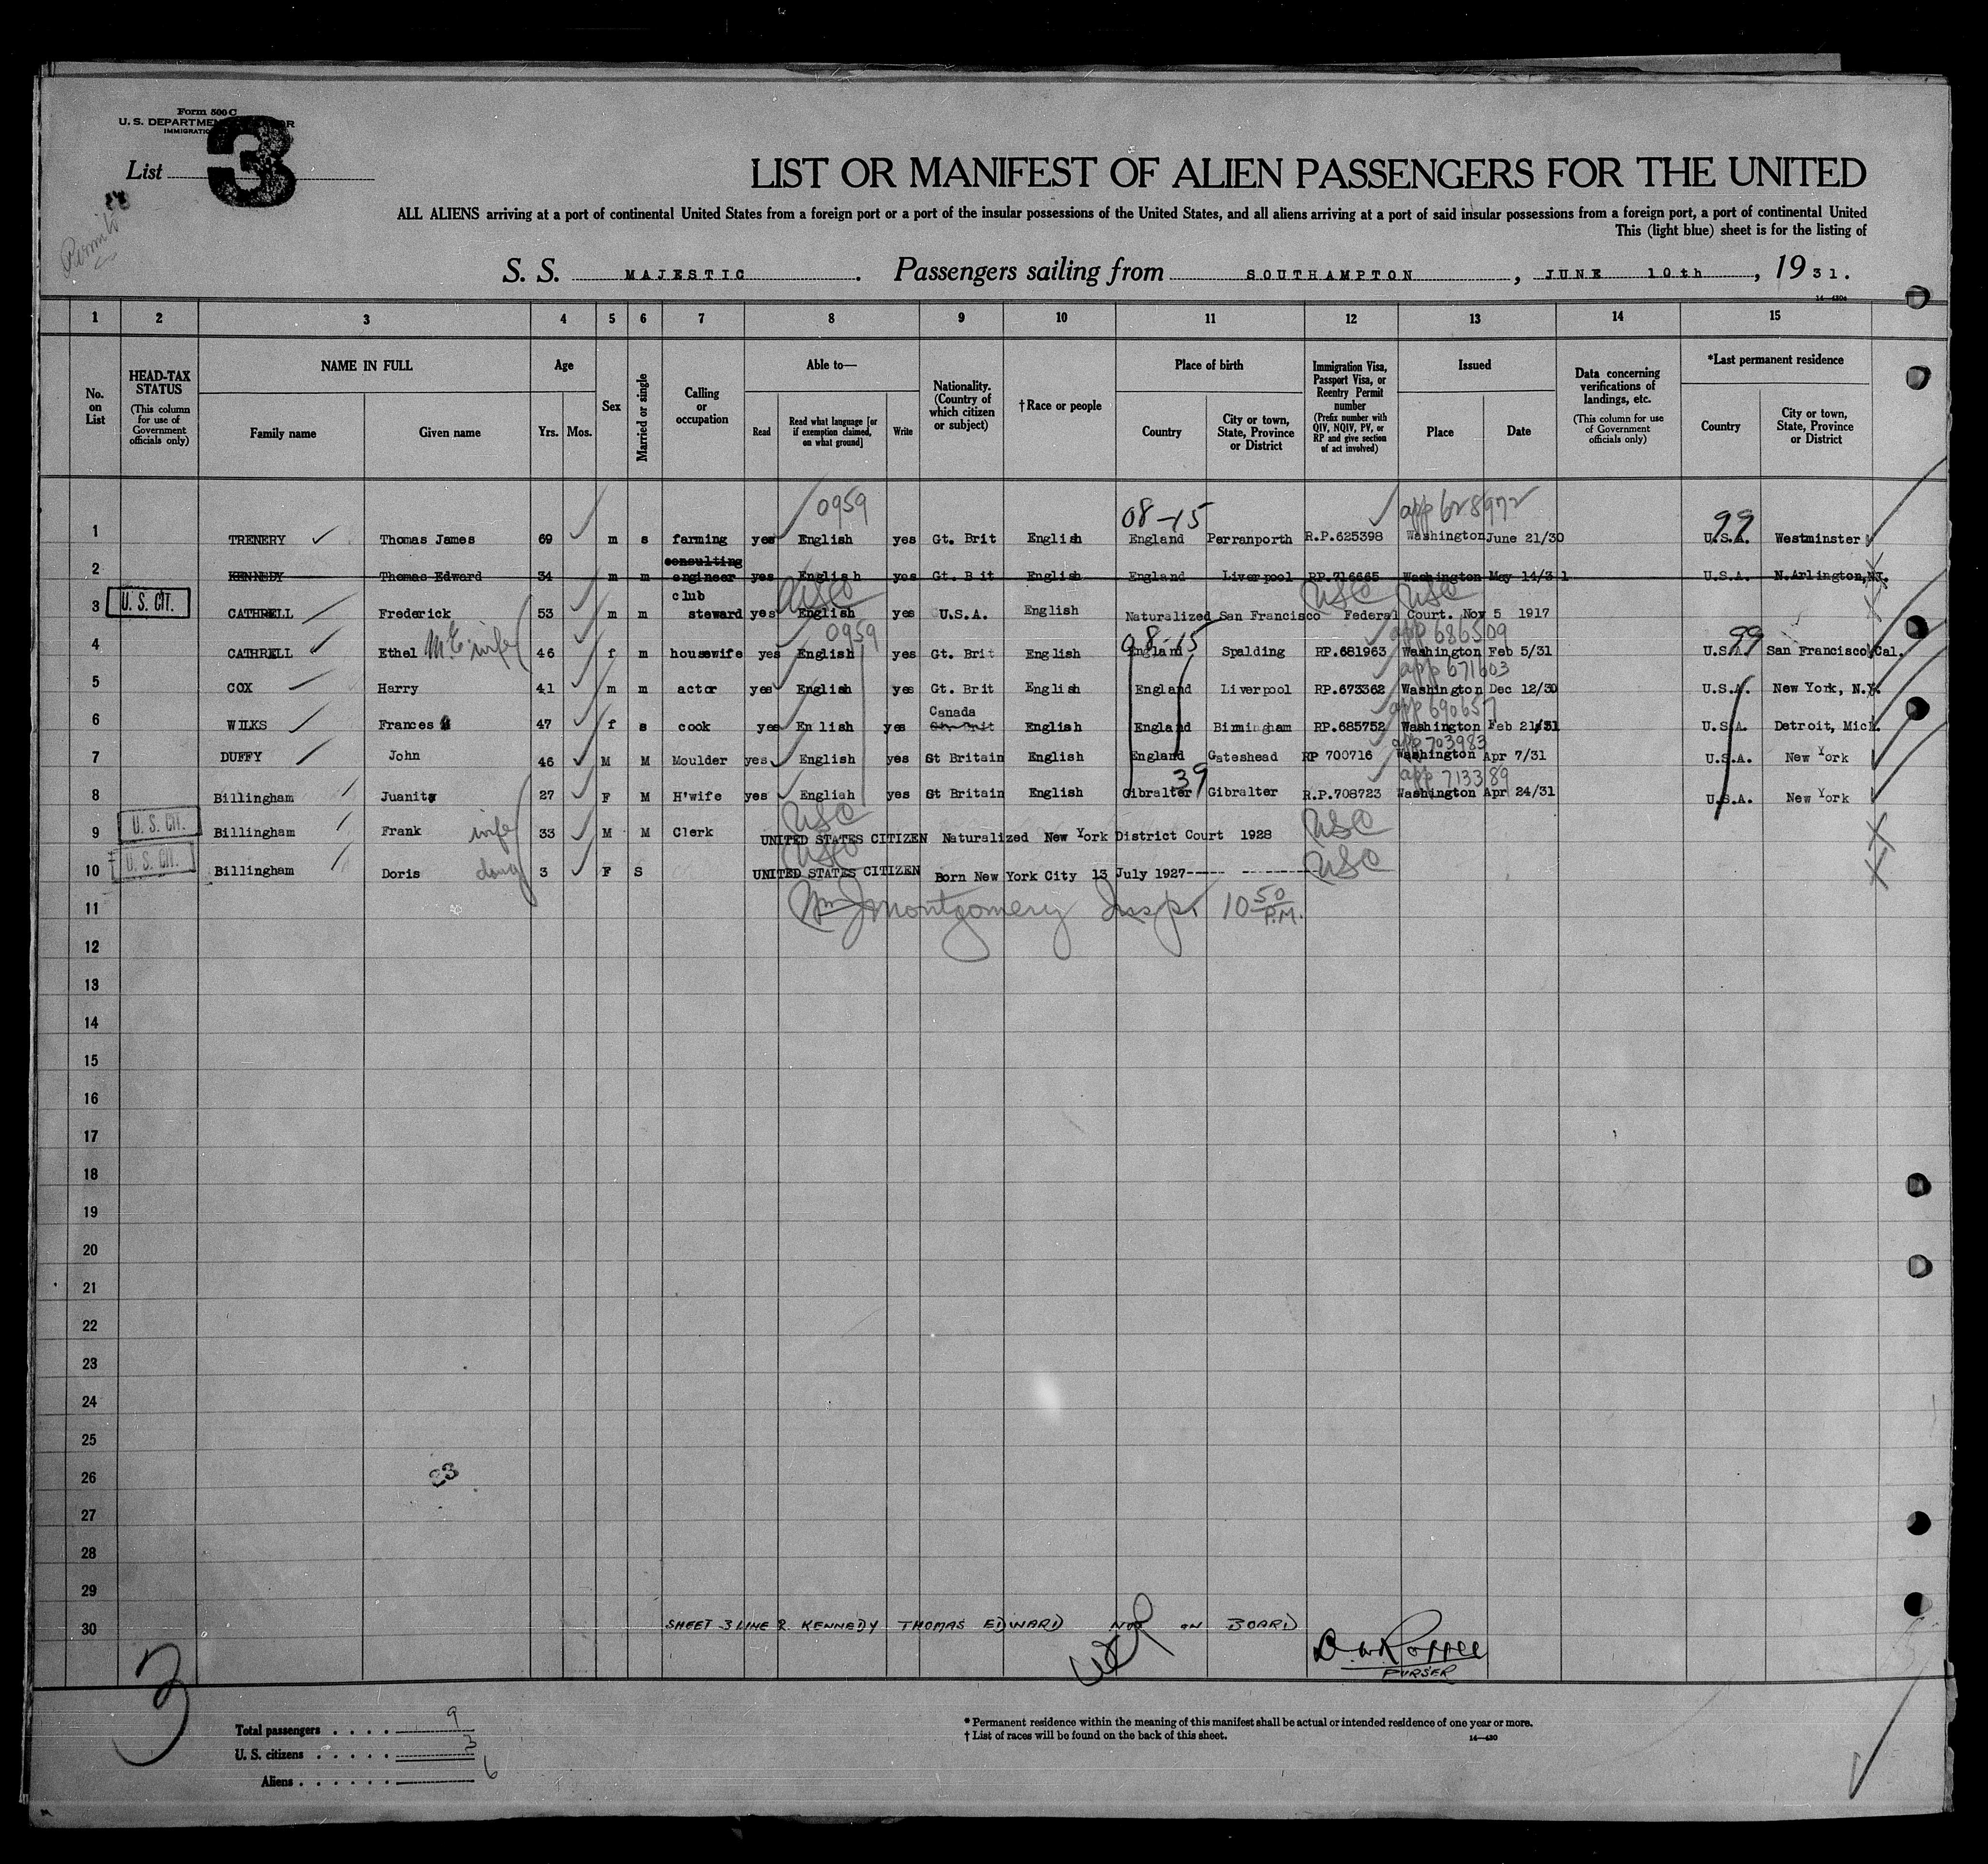 Form 500 C
U. S. DEPARTMENT
IMMIGRATION
List 3
Permit
LIST OR MANIFEST OF ALIEN PASSENGERS FOR THE UNITED
ALL ALIENS arriving at a port of continental United States from a foreign port or a port of the insular possessions of the United States, and all aliens arriving at a port of said insular possessions from a foreign port, a port of continental United
This (light blue) sheet is for the listing of
S. S. MAJESTIC. Passengers sailing from SOUTHAMPTON, JUNE 10th, 1931.
1 2 3 4 5 6 7 8 9 10 11 12 13 14 15
No. on List
HEAD-TAX STATUS (This column for use of Government officials only)
NAME IN FULL
Family name
Given name
Age
Yrs. Mos.
Sex
Married or single
Calling or occupation
Able to—
Read
Read what language [or if exemption claimed, on what ground]
Write
Nationality. (Country of which citizen or subject)
†Race or people
Place of birth
Country
City or town, State, Province or District
Immigration Visa, Passport Visa, or Reentry Permit number (Prefix number with QIV, NQIV, PV, or RP and give section of act involved)
Issued
Place
Date
Data concerning verifications of landings, etc. (This column for use of Government officials only)
*Last permanent residence
Country
City or town, State, Province or District
0959 08-15 app 628972 99
1 TRENERY Thomas James 69 m s farming yes English yes Gt. Brit English England Perranporth R.P.625398 Washington June 21/30 U.S.A. Westminster
2 KENNEDY Thomas Edward 34 m m consulting engineer yes English yes Gt. B it English England Liverpool RP.716665 Washington May 14/31 U.S.A. N.Arlington,NJ.
USC USC USC
3 U. S. CIT. CATHRELL Frederick 53 m m club steward yes English yes U.S.A. English Naturalized San Francisco Federal Court. Nov 5 1917
0959 08-15 app 686509 99
4 CATHRELL Ethel wife 46 f m housewife yes English yes Gt. Brit English England Spalding RP.681963 Washington Feb 5/31 U.S.A. San Francisco Cal.
app 671603
5 COX Harry 41 m m actor yes English yes Gt. Brit English England Liverpool RP.673362 Washington Dec 12/30 U.S.A. New York, N.Y.
app 690657
6 WILKS Frances 47 f s cook yes En lish yes Canada Gt. Brit English England Birmingham RP.685752 Washington Feb 21/31 U.S.A. Detroit, Mich.
app 703983
7 DUFFY John 46 M M Moulder yes English yes Gt Britain English England Gateshead RP 700716 Washington Apr 7/31 U.S.A. New York
39 app 713389
8 Billingham Juanita 27 F M H'wife yes English yes Gt Britain English Gibralter Gibralter R.P.708723 Washington Apr 24/31 U.S.A. New York
USC USC
9 U. S. CIT. Billingham Frank wife 33 M M Clerk UNITED STATES CITIZEN Naturalized New York District Court 1928
USC USC
10 U. S. CIT. Billingham Doris daug 3 F S UNITED STATES CITIZEN Born New York City 13 July 1927
11 Wm J Montgomery Insp. 10 50 P.M.
12
13
14
15
16
17
18
19
20
21
22
23
24
25
26
23
27
28
29
30 SHEET 3 LINE 2. KENNEDY THOMAS EDWARD NOT ON BOARD
PURSER
3
Total passengers . . . . 9
U. S. citizens . . . . . 3
Aliens . . . . . . 6
* Permanent residence within the meaning of this manifest shall be actual or intended residence of one year or more.
† List of races will be found on the back of this sheet.
14—430